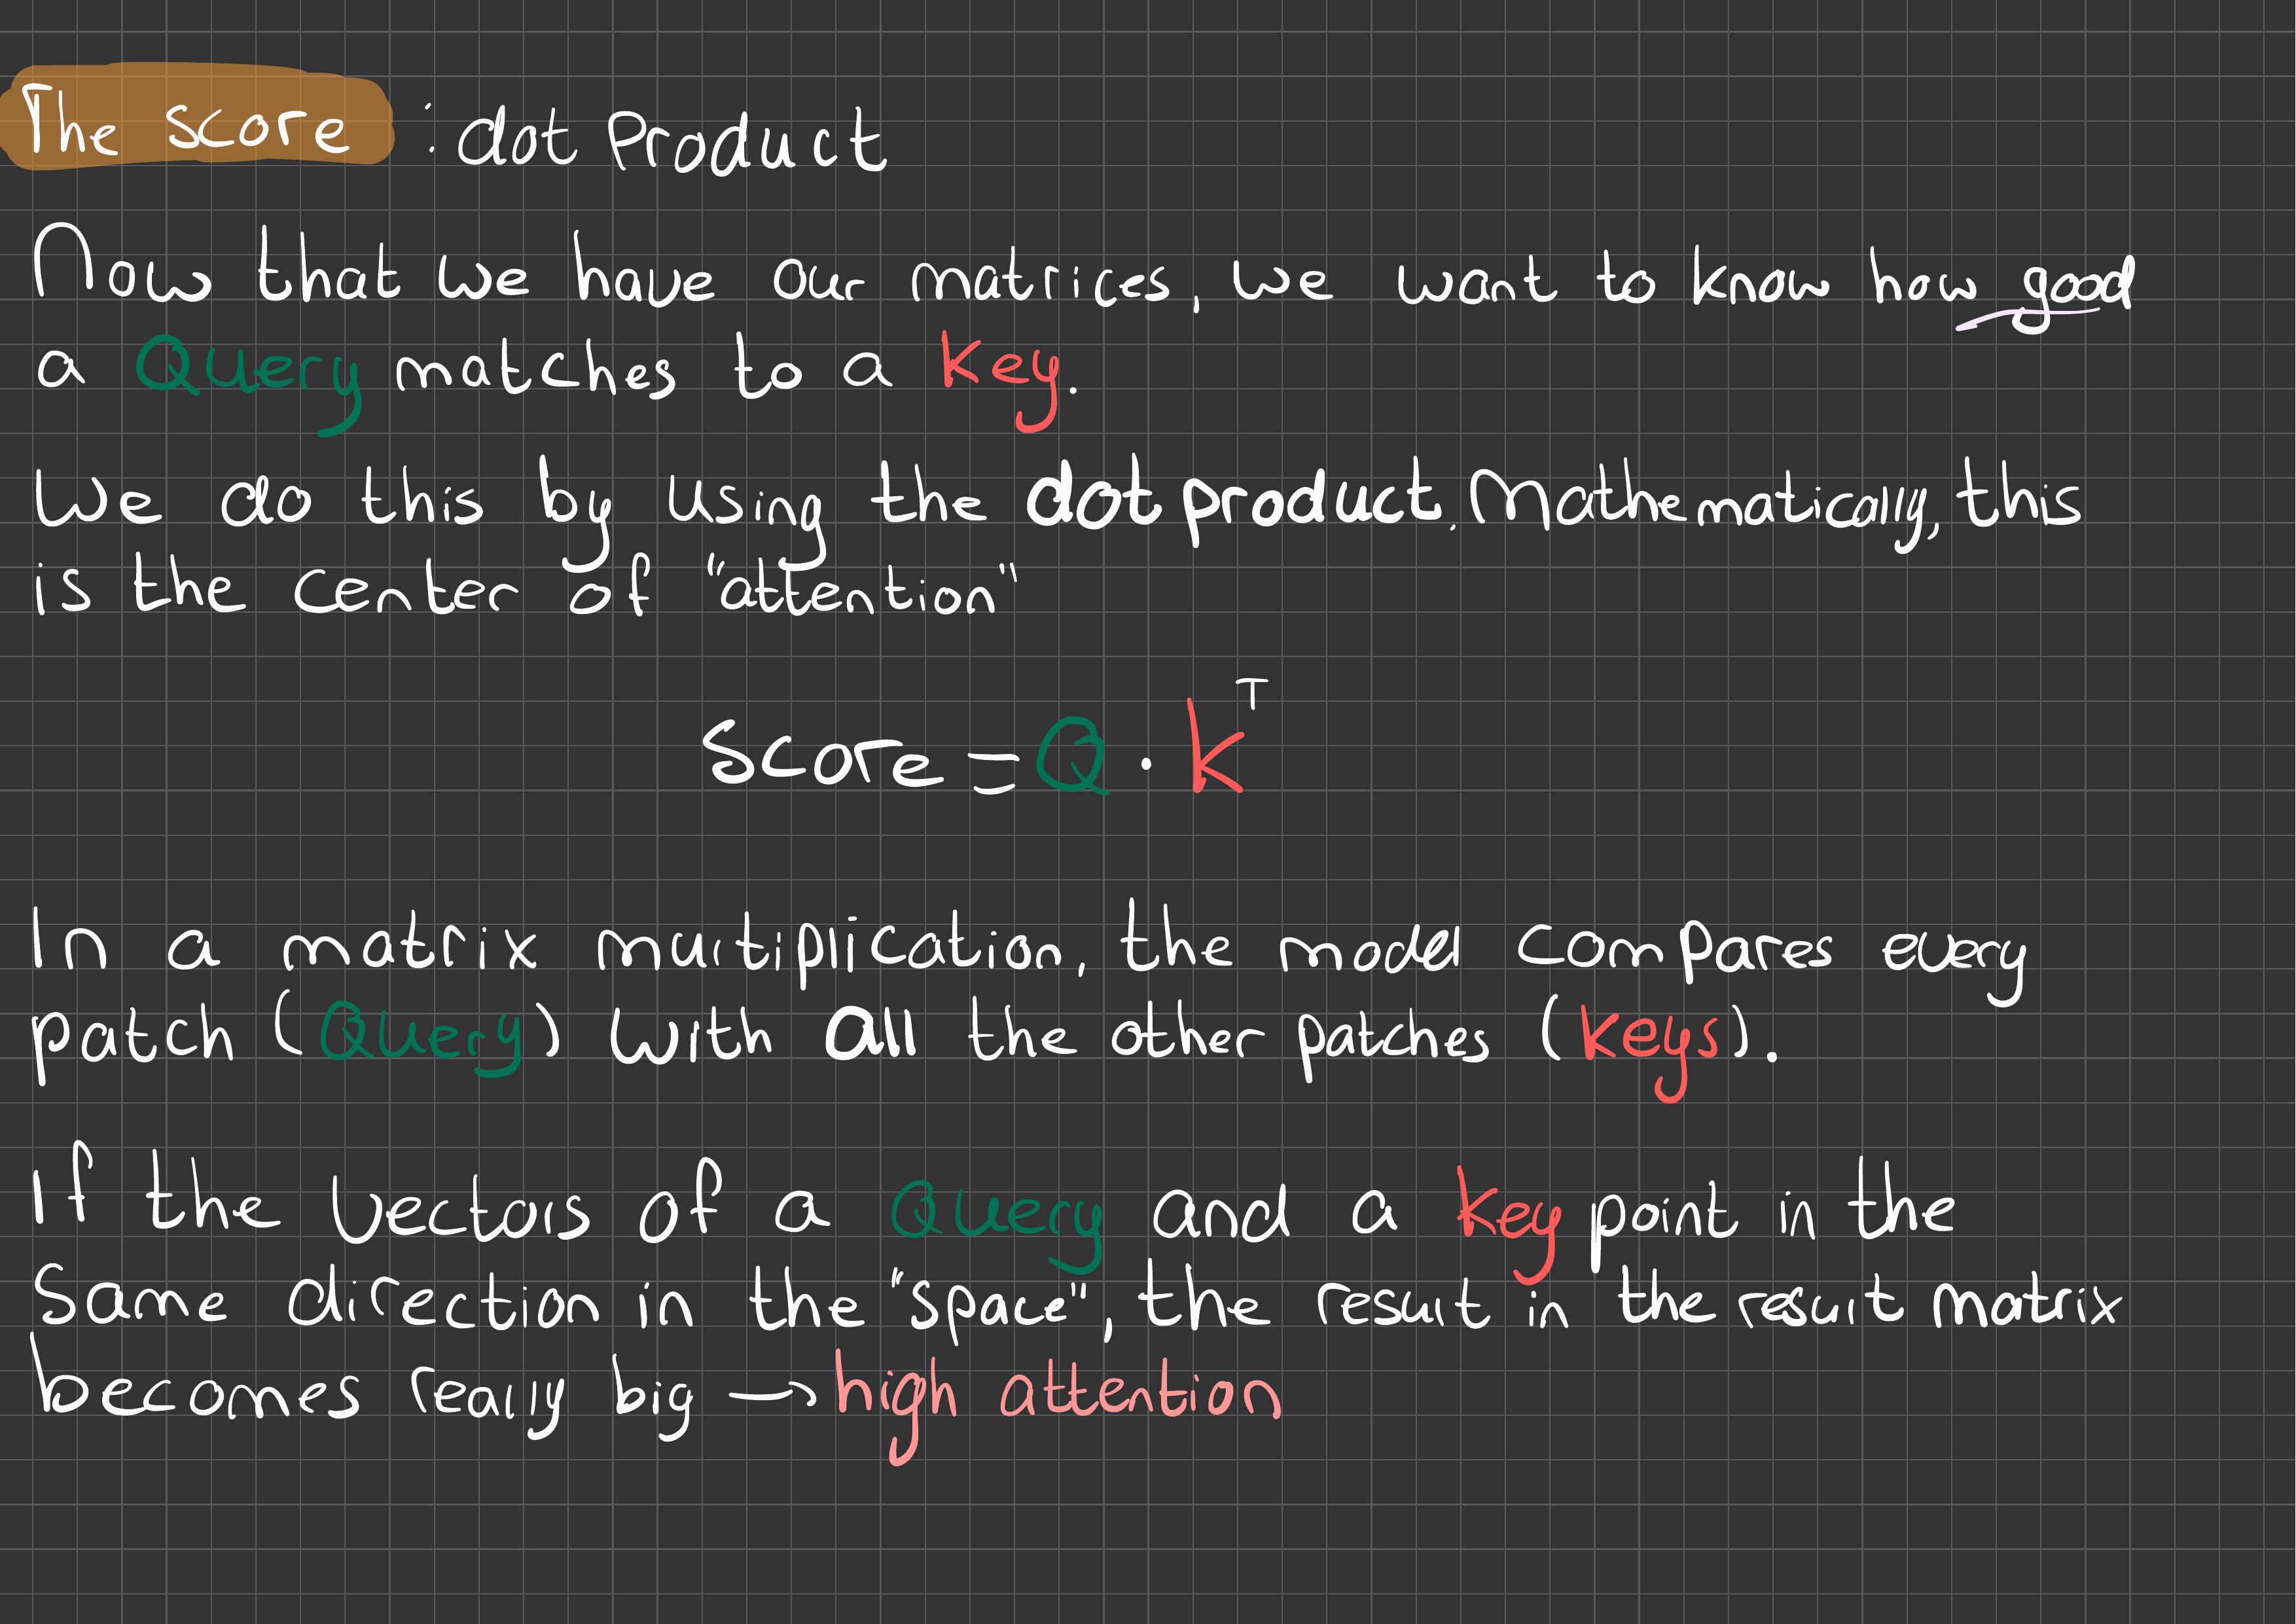 The score : dot Product
Now that we have our matrices, we want to know how good
a Query matches to a Key.
We do this by using the dot product. Mathematically, this
is the center of "attention"
Score = Q · K^T
In a matrix multiplication, the model compares every
patch (Query) with all the other patches (Keys).
If the vectors of a Query and a Key point in the
same direction in the "space", the result in the result matrix
becomes really big → high attention